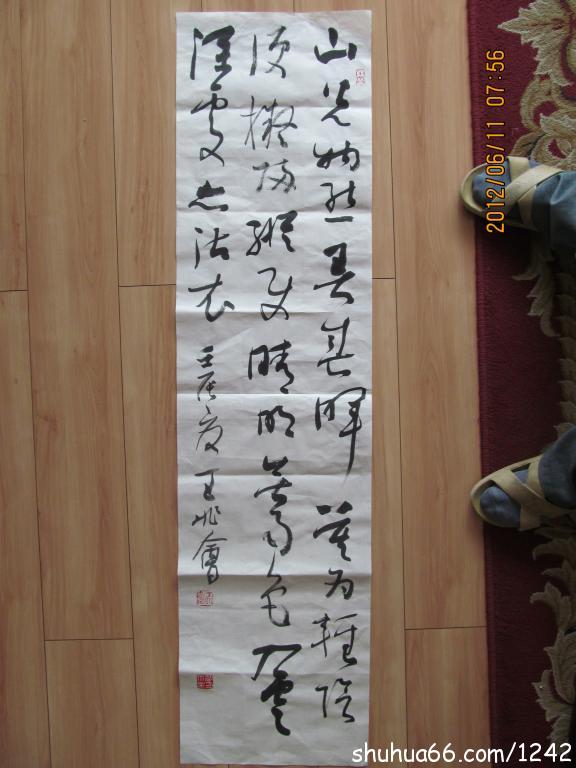 山光物態弄春暉莫为輕陰
便擬歸縱使晴明無雨色入雲
深處亦沾衣 壬辰夏 王兆會
2012/06/11 07:56
shuhua66.com/1242